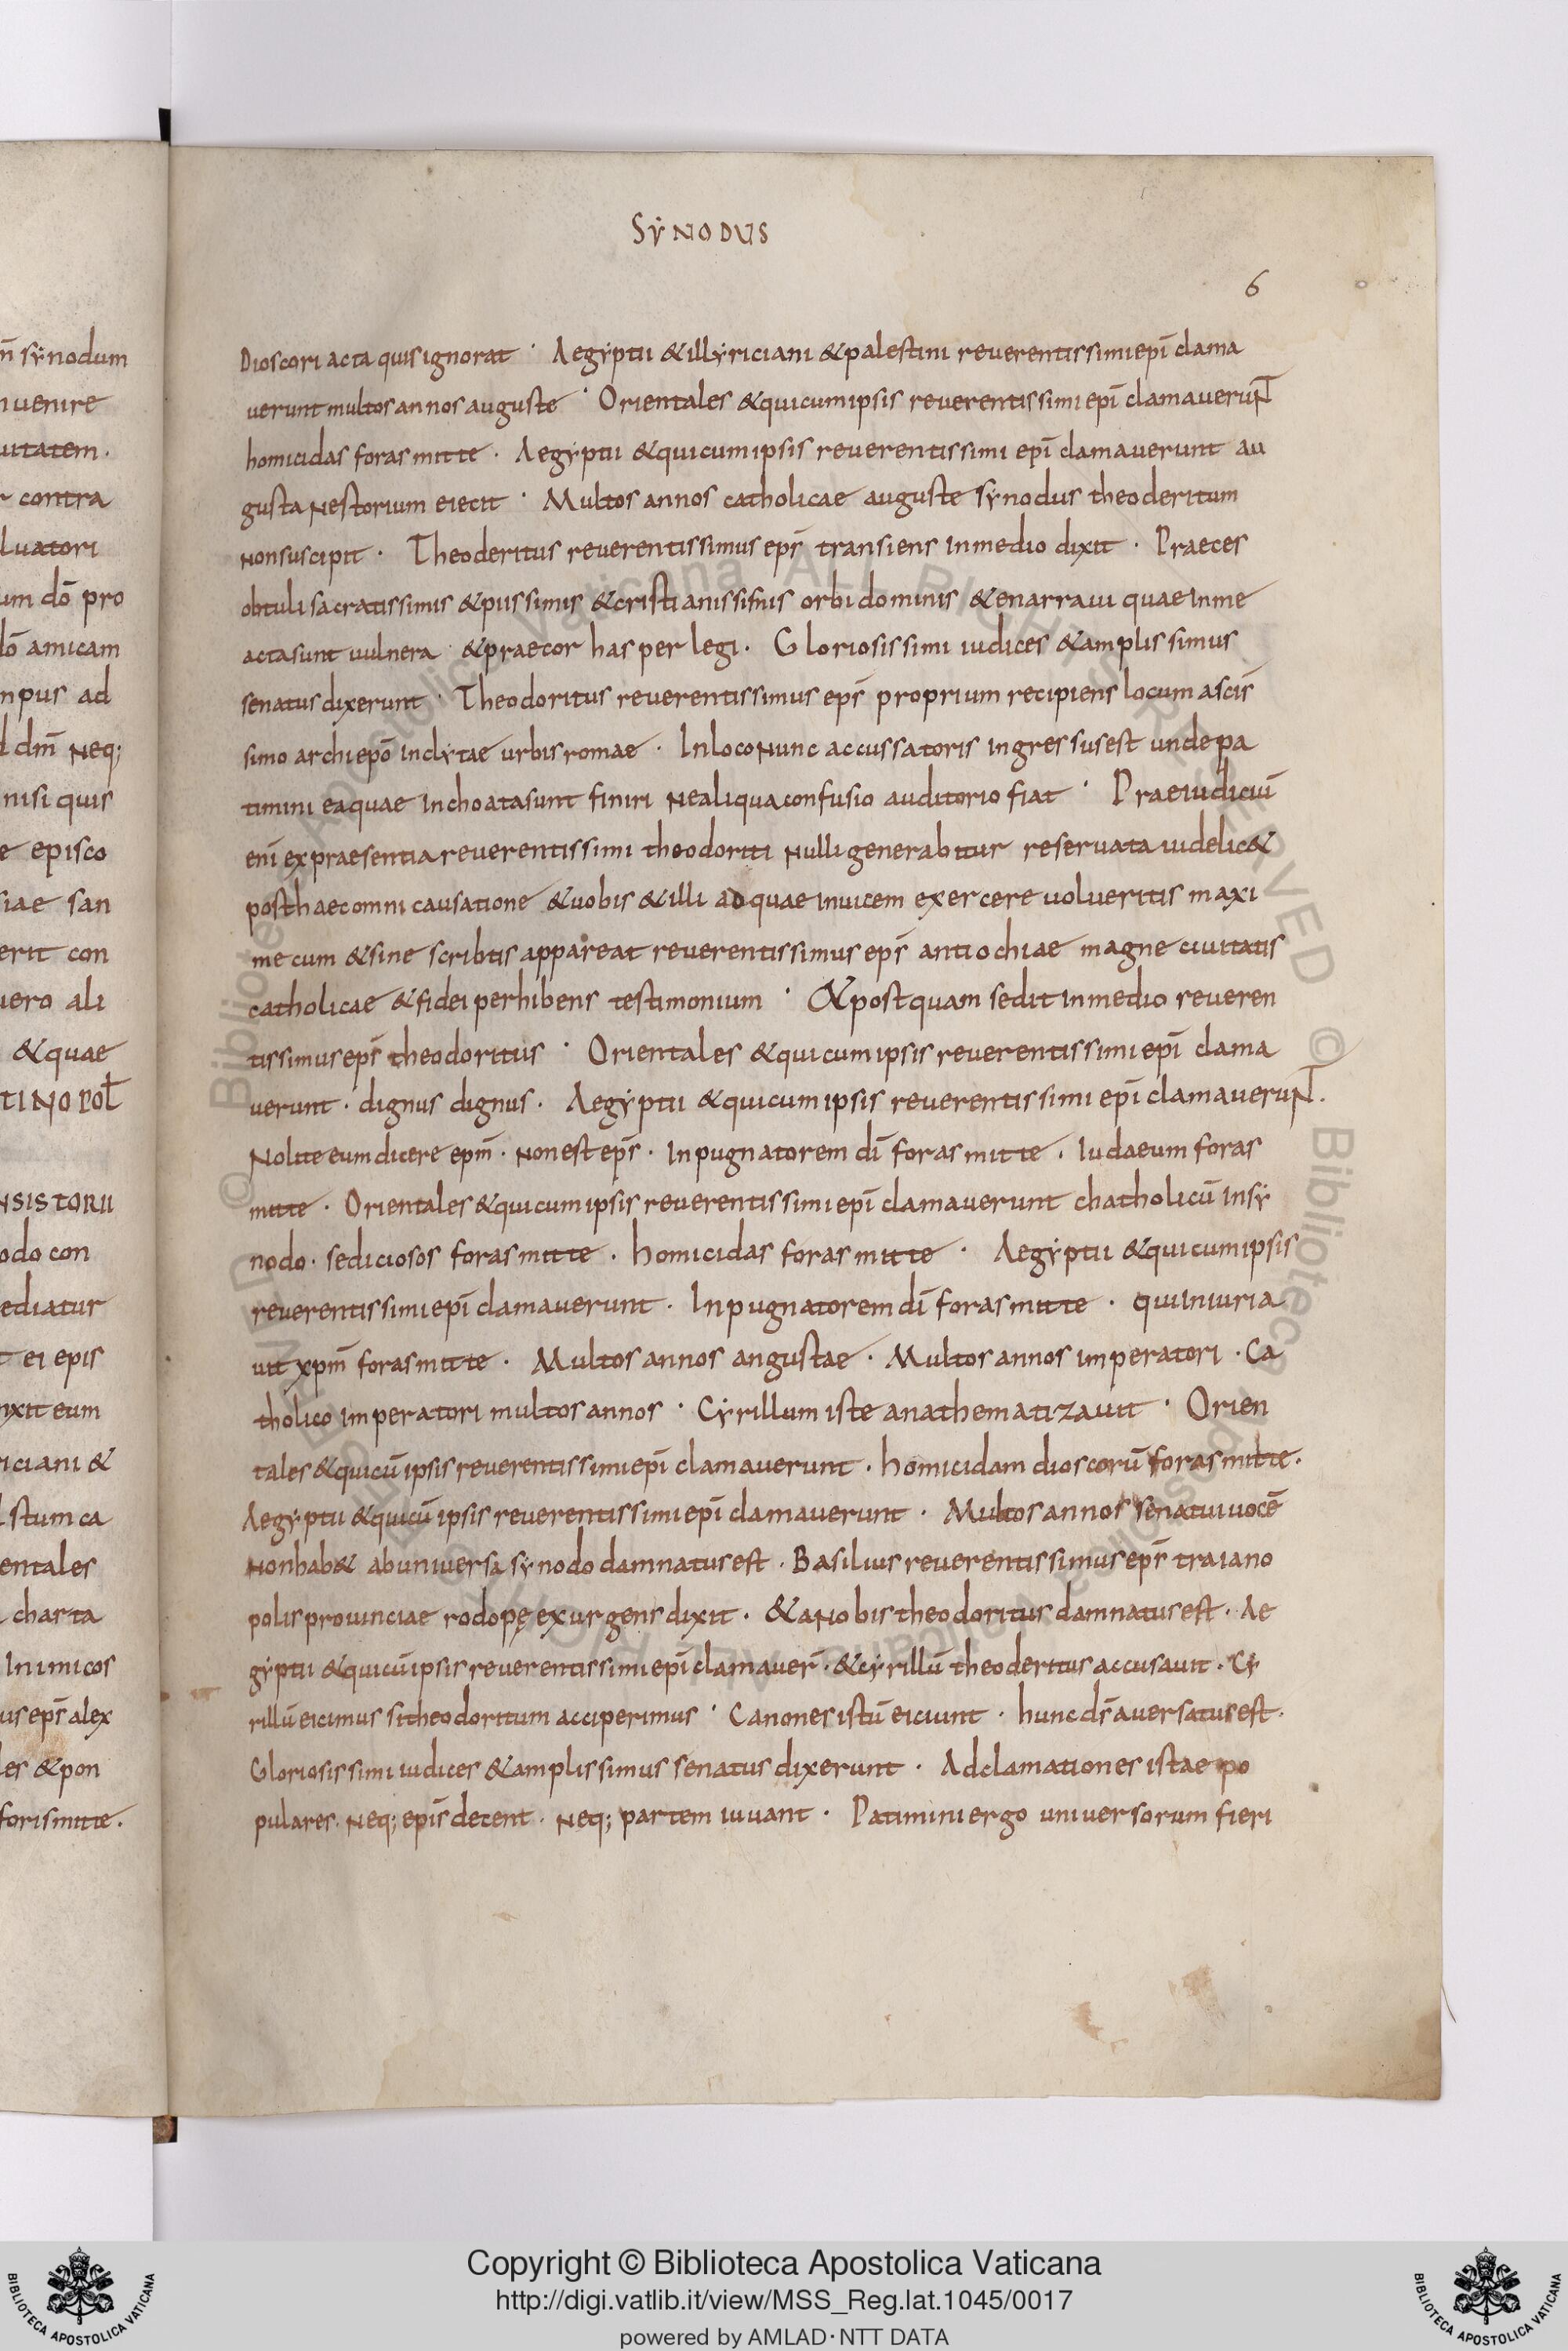 SYNODUS
6
Dioscori acta quis ignorat · Aegyptii & illyriciani & palestini reverentissimi epī clama
verunt multos annos auguste · Orientales & qui cum ipsis reverentissimi epī clamaverunt
homicidas foras mitte · Aegyptii & qui cum ipsis reverentissimi epī clamaverunt au
gusta nestorium eiecit · Multos annos catholicae auguste synodus theoderitum
non suscipit · Theoderitus reverentissimus eps̄ transiens in medio dixit · Praeces
obtuli sacratissimis & piissimis & cristianissimis orbi dominis & enarravi quae in me
acta sunt vulnera & praecor has perlegi · Gloriosissimi iudices & amplissimus
senatus dixerunt · Theodoritus reverentissimus eps̄ proprium recipiens locum a scīs
simo archiepō inclytae urbis romae · In loco nunc accussatoris ingressus est unde pa
timini ea quae inchoata sunt finiri ne aliqua confusio auditorio fiat · Praeiudiciū
enī ex praesentia reverentissimi theodoriti nulli generabitur reservata videlic&
post haec omni causatione & vobis & illi ad quae invicem exercere volueritis maxi
me cum & sine scribtis appareat reverentissimus eps̄ antiochiae magne civitatis
catholicae & fidei perhibens testimonium · & postquam sedit in medio reveren
tissimus eps̄ theodoritus · Orientales & qui cum ipsis reverentissimi epī clama
verunt · dignus dignus · Aegyptii & qui cum ipsis reverentissimi epī clamaverunt ·
Nolite eum dicere epm̄ · non est eps̄ · Inpugnatorem dī foras mitte · Iudaeum foras
mitte · Orientales & qui cum ipsis reverentissimi epī clamaverunt chatholicū in sy
nodo · sediciosos foras mitte · homicidas foras mitte · Aegyptii & qui cum ipsis
reverentissimi epī clamaverunt · Inpugnatorem dī foras mitte · qui iniuria
vit xpm̄ foras mitte · Multos annos angustae · Multos annos imperatori · Ca
tholico imperatori multos annos · Cyrillum iste anathematizavit · Orien
tales & qui cū ipsis reverentissimi epī clamaverunt · homicidam dioscorū foras mitte ·
Aegyptii & qui cū ipsis reverentissimi epī clamaverunt · Multos annos senatui vocē
non hab& ab universa synodo damnatus est · Basilius reverentissimus eps̄ traiano
polis provinciae rodopę exurgens dixit · & a nobis theodoritus damnatus est · Ae
gyptii & qui cū ipsis reverentissimi epī clamaver̄ · & cyrillū theoderitus accusavit · Cy
rillū eicimus si theodoritum acciperimus · Canones istū eiciunt · hunc ds̄ aversatus est ·
Gloriosissimi iudices & amplissimus senatus dixerunt · Adclamationes istae po
pulares · neq; epīs decent · neq; partem iuvant · Patimini ergo universorum fieri
n̄ synodum
nvenire
vitatem ·
r contra
lvatori
um dō pro
dō amicam
mpus ad
d dm̄ neq;
nisi quis
e episco
siae san
erit con
vero ali
& quae
TINOPOL̄
NSISTORII
odo con
ediatur
t ei epis
nxit eum
riciani &
stum ca
entales
charta
Inimicos
us eps̄ alex
les & pon
foris mitte ·
© Biblioteca Apostolica Vaticana ALL RIGHTS RESERVED
BIBLIOTECA APOSTOLICA VATICANA
Copyright © Biblioteca Apostolica Vaticana
http://digi.vatlib.it/view/MSS_Reg.lat.1045/0017
powered by AMLAD·NTT DATA
BIBLIOTECA APOSTOLICA VATICANA